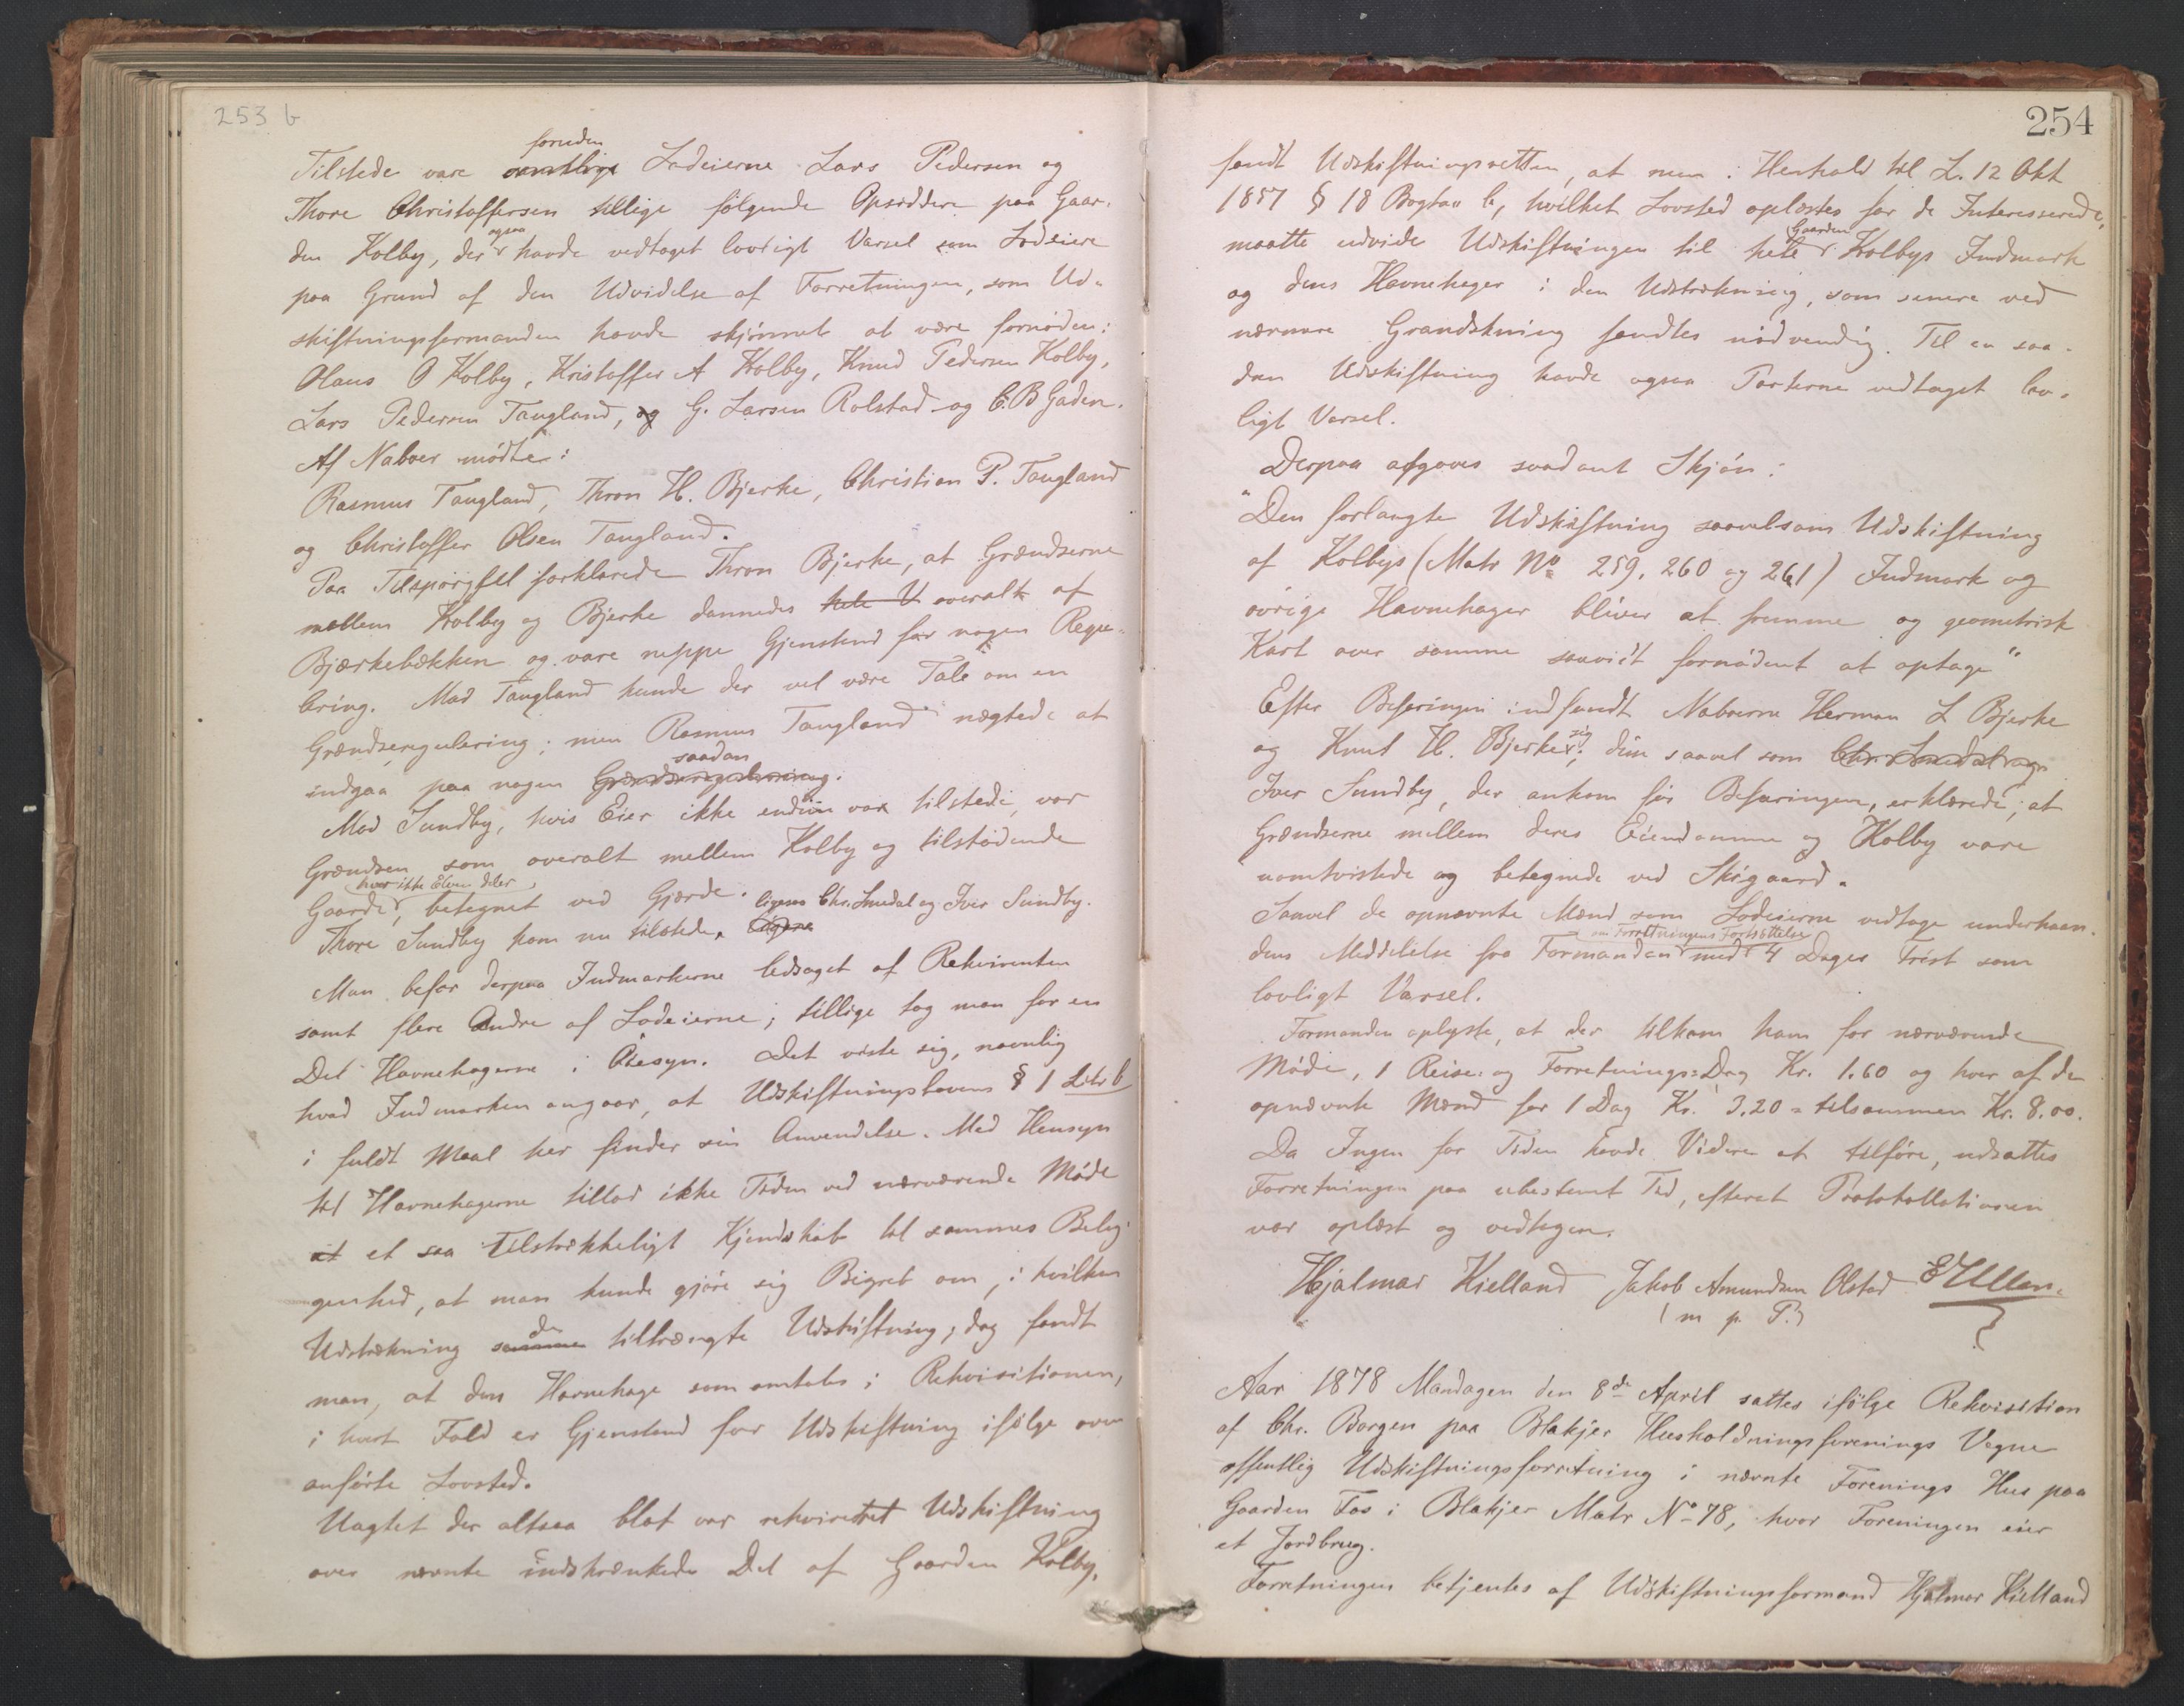 253 b
Tilstede vare samtlige foruden Lodeierne Lars Pedersen og
Thore Christoffersen tillige følgende Opsiddere paa Gaar-
den Kolby, der ogsaa havde vedtaget lovligt Varsel som Lodeiere
paa Grund af den Udvidelse af Forretningen, som Ud-
skiftningsformanden havde skjønnet at være fornøden:
Olaus O Kolby, Kristoffer A Kolby, Knud Pedersen Kolby,
Lars Pedersen Taugland, og G. Larsen Rolstad og C. B Gaden.
Af Naboer mødte:
Rasmus Taugland, Thron H. Bjerke, Christian P. Taugland
og Christoffer Olsen Taugland.
Paa Tilspørgsel forklarede Thron Bjerke, at Grændserne
mellem Kolby og Bjerke dannedes hele V overalt af
Bjærkebækken og vare neppe Gjenstand for nogen Regu-
lering. Mod Taugland kunde der vel være Tale om en
Grændseregulering; men Rasmus Taugland nægtede at
indgaa paa nogen Grændseregulering saadan.
Mod Sundby, hvis Eier ikke endnu var tilstede, var
Grændsen som overalt mellem Kolby og tilstødende
Gaarde, hvor ikke Elven deler, betegnet ved Gjærde. ligesaa Chr. Smedal og Iver Sundby.
Thore Sundby kom nu tilstede.
Man befor derpaa Indmarkerne ledsaget af Rekvirenten
samt flere Andre af Lodeierne; tillige tog man for en
Del Havnehagerne i Øiesyn. Det viste sig, navnlig
hvad Indmarken angaar, at Udskiftningslovens § 1 Litr b
i fuldt Maal her finder sin Anvendelse. Med Hensyn
til Havnehagerne tillod ikke Tiden ved nærværende Møde
at et saa tilstrækkeligt Kjendskab til sammes Belig-
genhed, at man kunde gjøre sig Begreb om, i hvilken
Udstrækning samme de tiltrængte Udskiftning; dog fandt
man, at den Havnehage som omtales i Rekvisitionen,
i hvert Fald er Gjenstand for Udskiftning ifølge oven
anførte Lovsted.
Uagtet der altsaa blot var rekvireret Udskiftning
over nævnte indskrænkede Del af Gaarden Kolby,
254
fandt Udskiftningsretten, at man i Henhold til L. 12 Okt
1857 § 18 Bogstav b, hvilket Lovsted oplæstes for de Interesserede,
maatte udvide Udskiftningen til hele Gaarden Kolbys Indmark
og dens Havnehager i den Udstrækning, som senere ved
nærmere Grandskning fandtes nødvendig. Til en saa-
dan Udskiftning havde ogsaa Parterne vedtaget lov-
ligt Varsel.
Derpaa afgaves saadant Skjøn:
"Den forlangte Udskiftning saavelsom Udskiftning
af Kolbys (Matr No 259, 260 og 261) Indmark og
øvrige Havnehager bliver at fremme og geometrisk
Kart over samme saavidt fornødent at optage"
Efter Befaringen indfandt Naboerne Herman L Bjerke
og Knut H. Bjerke sig; disse saavel som
Iver Sundby, der ankom før Befaringen, erklærede, at
Grændserne mellem deres Eiendomme og Kolby vare
uomtvistede og betegnede ved Skigaard.
Saavel de opnævnte Mænd som Lodeierne vedtage underhaan-
dens Meddelelse fra Formanden om Forretningens Fortsættelse med 4 Dages Frist som
lovligt Varsel.
Formanden oplyste, at der tilkom ham for nærværende
Møde, 1 Reise- og Forretnings-Dag Kr. 1.60 og hver af de
opnævnte Mænd for 1 Dag Kr. 3.20 = tilsammen Kr. 8.00.
Da Ingen for Tiden havde Videre at tilføre, udsattes
Forretningen paa ubestemt Tid, efterat Protokollationen
var oplæst og vedtagen.
Hjalmar Kielland Jakob Amundsen Olstad E Ullern.
(m p. P.)
Aar 1878 Mandagen den 8de April sattes ifølge Rekvisition
af Chr. Borgen paa Blakjer Husholdningsforenings Vegne
offentlig Udskiftningsforretning i nævnte Forenings Hus paa
Gaarden Fos i Blakjer Matr No 78, hvor Foreningen eier
et Jordbrug.
Forretningen betjentes af Udskiftningsformand Hjalmar Kielland